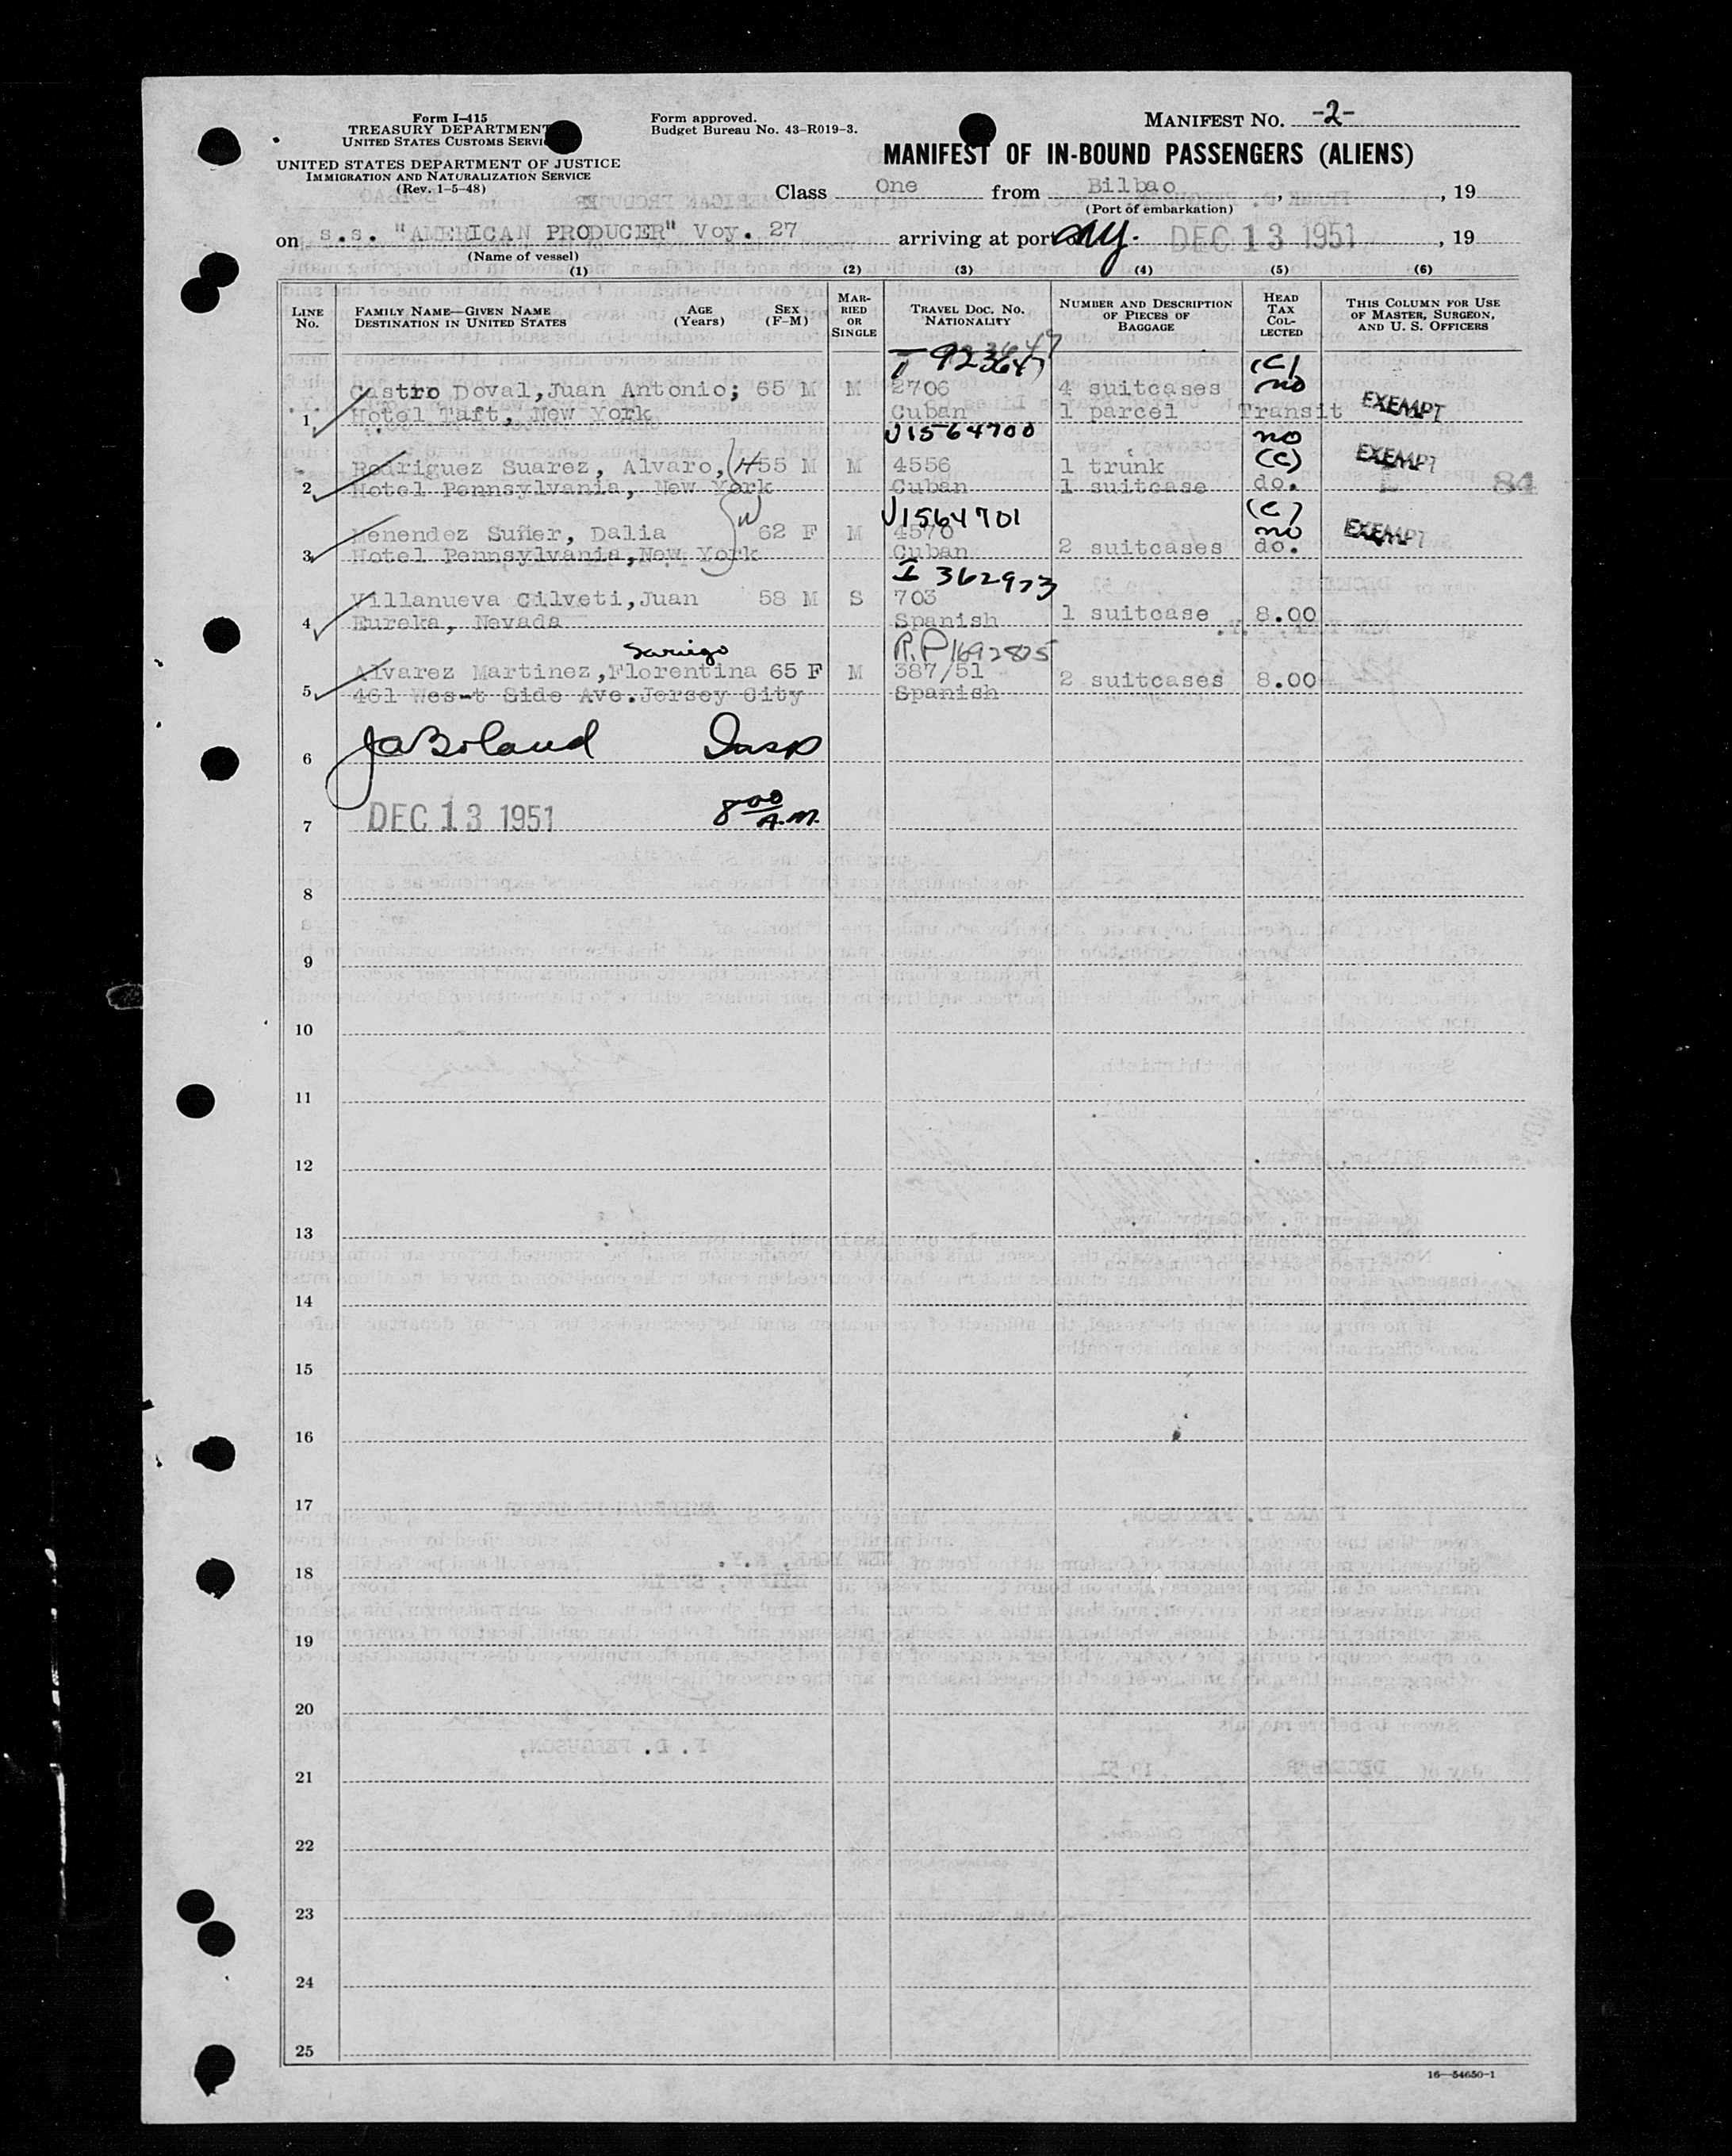 Form I-415
TREASURY DEPARTMENT
UNITED STATES CUSTOMS SERVICE
UNITED STATES DEPARTMENT OF JUSTICE
IMMIGRATION AND NATURALIZATION SERVICE
(Rev. 1-5-48)
Form approved.
Budget Bureau No. 43-R019-3.
MANIFEST NO. -2-
MANIFEST OF IN-BOUND PASSENGERS (ALIENS)
Class One from Bilbao, 19
(Port of embarkation)
on s.s. "AMERICAN PRODUCER" Voy. 27 arriving at port of NY. DEC 13 1951, 19
(Name of vessel)
(1) (2) (3) (4) (5) (6)
LINE No. FAMILY NAME—GIVEN NAME DESTINATION IN UNITED STATES AGE (Years) SEX (F-M) MARRIED OR SINGLE TRAVEL DOC. NO. NATIONALITY NUMBER AND DESCRIPTION OF PIECES OF BAGGAGE HEAD TAX COLLECTED THIS COLUMN FOR USE OF MASTER, SURGEON, AND U. S. OFFICERS
(C)
Castro Doval, Juan Antonio; 65 M M 2706 4 suitcases no
1 Hotel Taft, New York Cuban 1 parcel Transit EXEMPT
V1564700 no
Rodriguez Suarez, Alvaro, (H 55 M M 4556 1 trunk (C) EXEMPT
2 Hotel Pennsylvania, New York Cuban 1 suitcase do. 84
V1564701 (C)
Menendez Suñer, Dalia W 62 F M 4570 no EXEMPT
3 Hotel Pennsylvania, New York Cuban 2 suitcases do.
I 362973
Villanueva Cilveti, Juan 58 M S 703 1 suitcase 8.00
4 Eureka, Nevada Spanish
R.P 1692825
Alvarez Martinez, Florentina 65 F M 387/51 2 suitcases 8.00
5 461 West Side Ave. Jersey City Spanish
6 JA Boland Insp
7 DEC 13 1951 8 00 A.M.
8
9
10
11
12
13
14
15
16
17
18
19
20
21
22
23
24
25
16—54650-1